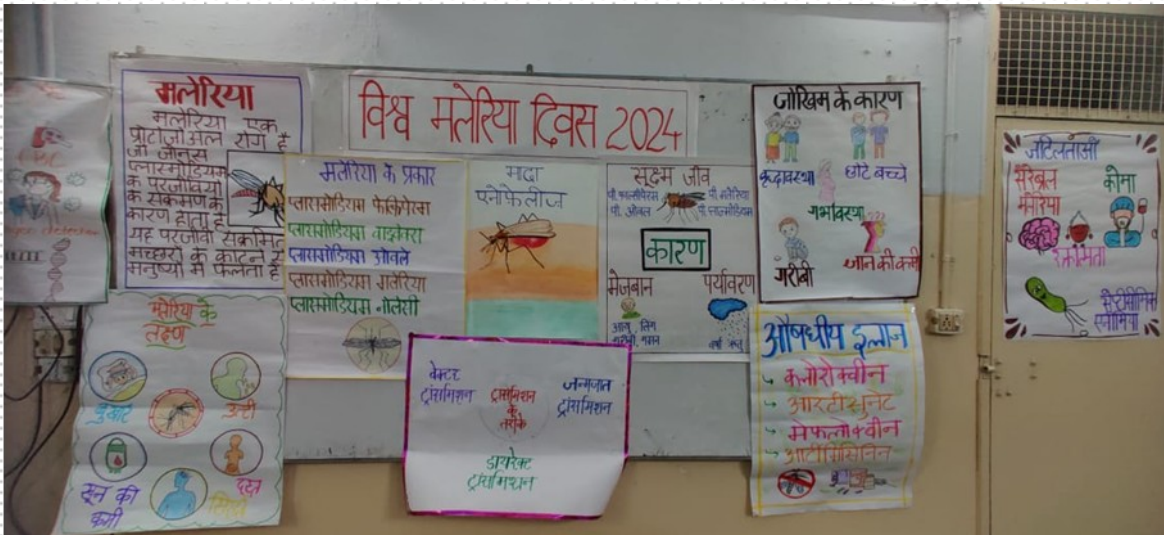 विश्व मलेरिया दिवस 2024
CBC
मलेरिया
मलेरिया एक
प्रोटोजोअल रोग है
जो जीनस
प्लास्मोडियम
के परजीवियों
के संक्रमण के
कारण होता है
यह परजीवी संक्रमित
मच्छरों के काटने से
मनुष्यों में फैलता है
मलेरिया के प्रकार
प्लासमोडियम फेल्सिपेरम
प्लासमोडियम वाइवेक्स
प्लासमोडियम ओवेल
प्लासमोडियम मलेरिया
प्लासमोडियम नोलेसी
मादा
एनोफेलीज
सूक्ष्म जीव
पी. ओवेल
पी. मलेरिया
कारण
मेजबान
पर्यावरण
आयु, लिंग
वर्षा ऋतु
जोखिम के कारण
वृद्धावस्था
छोटे बच्चे
गर्भावस्था
गरीबी
ज्ञान की कमी
जटिलताओं
सेरेब्रल
मलेरिया
कोमा
रक्तामता
मलेरिया के
लक्षण
बुखार
उल्टी
खून की
कमी
दस्त
वेक्टर
ट्रांसमिशन
ट्रांसमिशन
के
तरीके
जन्मजात
ट्रांसमिशन
डायरेक्ट
ट्रांसमिशन
औषधीय इलाज
क्लोरोक्वीन
आरटीसुनेट
मेफलाक्वीन
आर्टीमिसिनिन